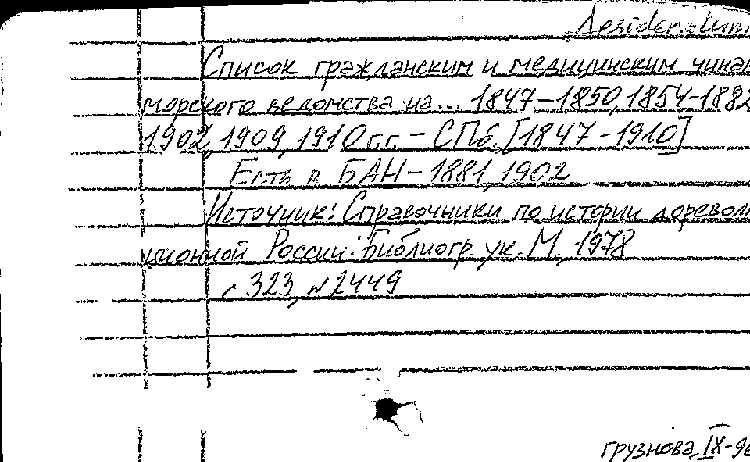 Desideratum
Список гражданским и медицинским чинам
морского ведомства на... 1847-1850, 1854-1882
1902, 1909, 1910 г.г. - СПб, [1847-1910]
Есть в БАН - 1881, 1902
Источник: Справочники по истории дорево
ционной России: Библиогр. ук. М., 1978
с 323, №2449
грузнова IX-9